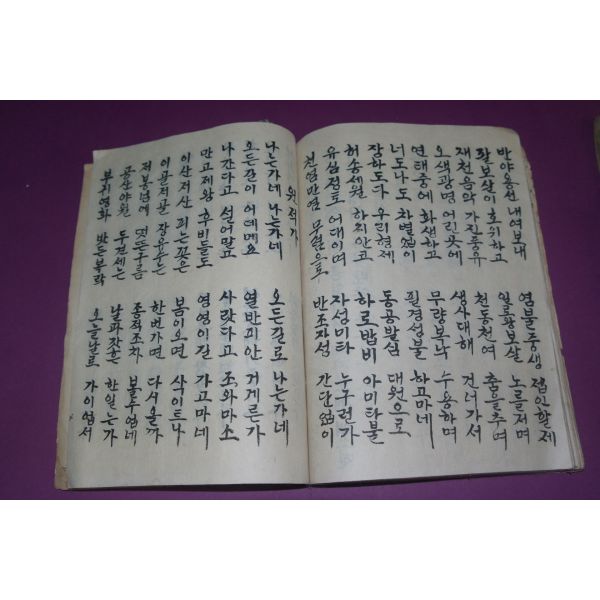 반야용선 내여보내 염불중생 접인할제
팔보살이 호위하고 일륭왕보살 노를저며
재천음악 가진풍유 천동천여 춤을추며
오색광명 어린곳에 생사대해 건너가서
연태중에 화생하고 무량복낙 수용하며
너도나도 차별없이 필경성불 하고마네
잠하도다 우리형제 동공발심 대원으로
허송세월 하지안코 하로밥비 아미타불
유심정토 어대이며 자성미타 누구런가
천염만염 무렴으로 반조자성 간단없이
원적가
나는가네 나는가네 오든길로 나는가네
오든길이 어데메요 열반피안 거게르가
나간다고 설어말고 사랏다고 조와마소
만고제왕 후비들도 영영이길 가고마네
이산저산 피는꽃은 봄이오면 사이트나
이골저골 장유수는 한번가면 다시올까
저봉넘에 떳든구름 종적조차 볼수없네
공산야월 두견세는 날과갓흔 한일는가
부귀영화 밧든복락 오늘날로 가이없서